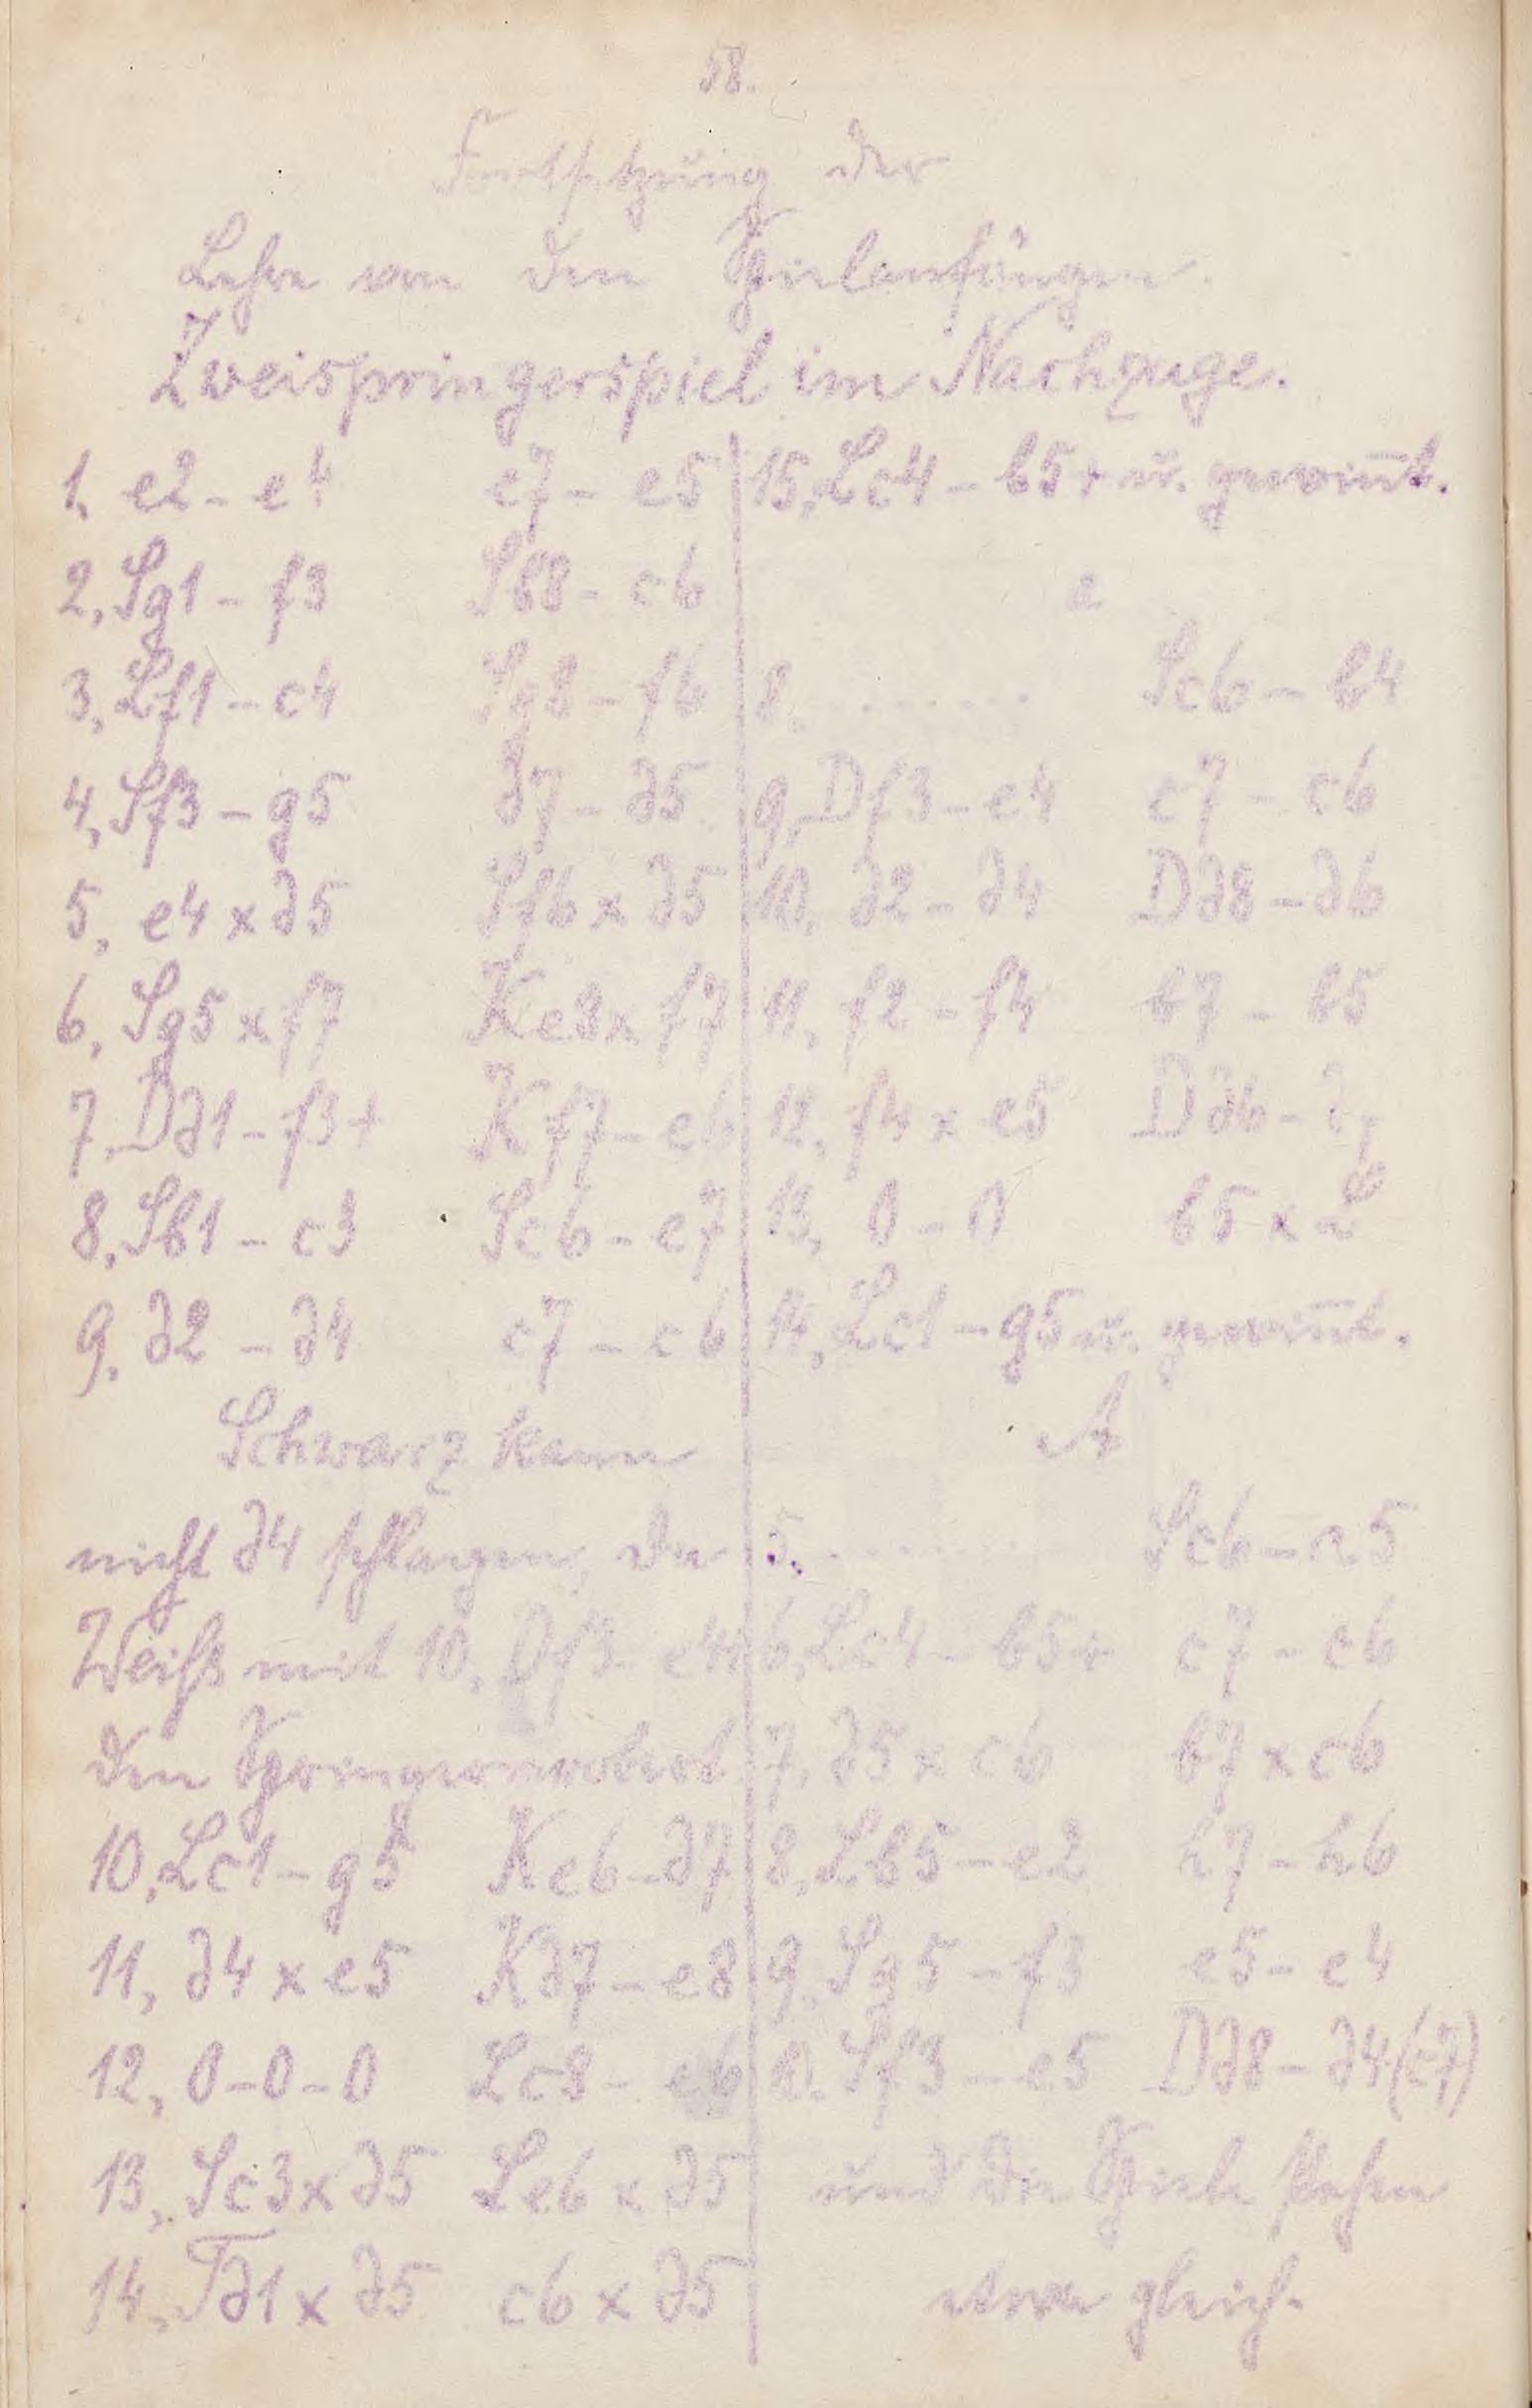 58.
Fortsetzung der
Lehre von den Spielanfängen.
Zweispringerspiel im Nachzuge.
1, e2 - e4 e7 - e5
2, Sg1 - f3 Sb8 - c6
3, Lf1 - c4 Sg8 - f6
4, Sf3 - g5 d7 - d5
5, e4 x d5 Sf6 x d5
6, Sg5 x f7 Ke8 x f7
7, Dd1 - f3+ Kf7 - e6
8, Sb1 - c3 Sc6 - e7
9, d2 - d4 c7 - c6
Schwarz kann
nicht d4 schlagen, da
Weiß mit 10, Df3 - e4+
den Springer erobert
10, Lc1 - g5 Ke6 - d7
11, d4 x e5 Kd7 - e8
12, 0-0-0 Lc8 - e6
13, Sc3 x d5 Le6 x d5
14, Td1 x d5 c6 x d5
15, Lc4 - b5+ u. gewin̄t.
a
8. ....... Sc6 - b4
9, Df3 - e4 c7 - c6
10, d2 - d4 Dd8 - d6
11, f2 - f4 b7 - b5
12, f4 x e5 Dd6 - d7
13, 0 - 0 b5 x L
14, Lc1 - g5 u. gewin̄t.
A
5. .......... Sc6 - a5
6, Lc4 - b5+ c7 - c6
7, d5 x c6 b7 x c6
8, Lb5 - e2 h7 - h6
9, Sg5 - f3 e5 - e4
10. Sf3 - e5 Dd8 - d4 (c7)
und die Spiele stehen
etwa gleich.